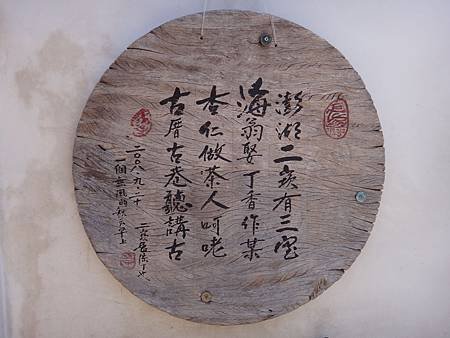 澎湖二崁有三寶
海翁娶丁香作某
杏仁做茶人呵咾
古厝古巷聽講古
二〇〇八.九.二十
一個無風的秋